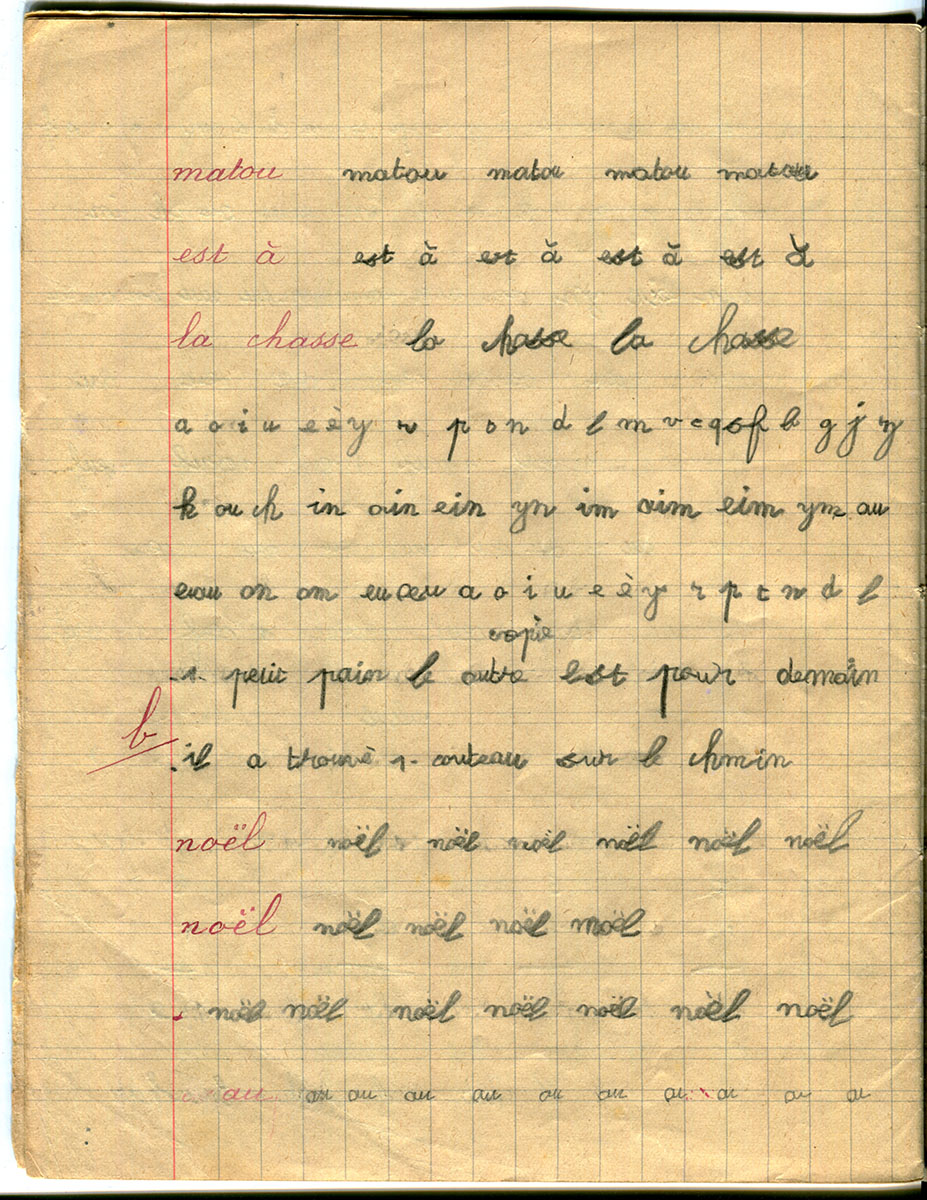 matou matou matou matou matou
est à est à est à est à est à
la chasse la chasse la chasse
a o i u e è y r p o n d l m v c q s f b g j z
k ou ch in ain ein yn im aim eim ym au
eau on om eu œu a o i u e è y r p t n d l
copie
1 petit pain le autre est pour demain
b
il a trouvé 1 couteau sur le chmin
noël noël noël noël noël noël noël
noël noël noël noël noël
noël noël noël noël noël noël noël
au au au au au au au au au au au